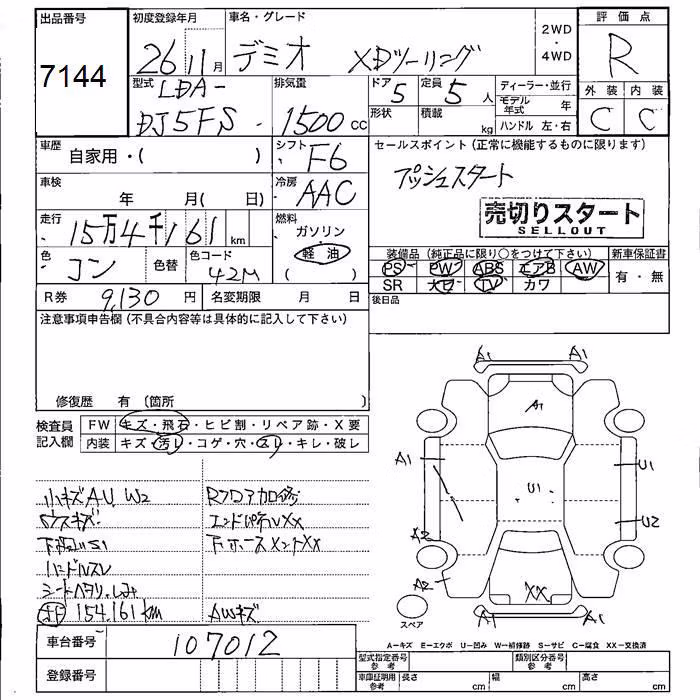 出品番号
7144
初度登録年月
26 11 月
車名・グレード
デミオ XDツーリング
2WD
・
4WD
評価点
R
型式
LDA-
DJ5FS
排気量
1500 CC
ドア
5
定員
5 人
形状
積載
kg
ディーラー・並行
モデル年式 年
ハンドル 左・右
外装 内装
C C
車歴
自家用・( )
シフト
F6
セールスポイント(正常に機能するものに限ります)
プッシュスタート
売切りスタート
SELLOUT
車検
年 月( 日)
冷房
AAC
走行
15万4千161 km
燃料
ガソリン
軽油
( )
色
コン
色替
色コード
42M
装備品(純正品に限り○をつけて下さい)
新車保証書
PS PW ABS エアB AW
有・無
SR TV カワ
R券 9,130 円
名変期限 月 日
後日品
注意事項申告欄(不具合内容等は具体的に記入して下さい)
修復歴 有(箇所 )
検査員
記入欄
FW キズ・飛石・ヒビ割・リペア跡・X要
内装 キズ・汚レ・コゲ・穴・スレ・キレ・破レ
小キズA.U. W2
Rフロア加修
ウスキズ
ハンドルスレ
シートヘタリ、しみ
154,161 km
AWキズ
A1 A1
A1
A1
U1
U1
U2
A2
A2
XX
A1 A1
スペア
A-キズ E-エクボ U-凹み W-補修跡 S-サビ C-腐食 XX-交換済
車台番号
107012
登録番号
型式指定番号
参考
類別区分番号
参考
車庫証明用
参考
長さ cm
幅 cm
高さ cm